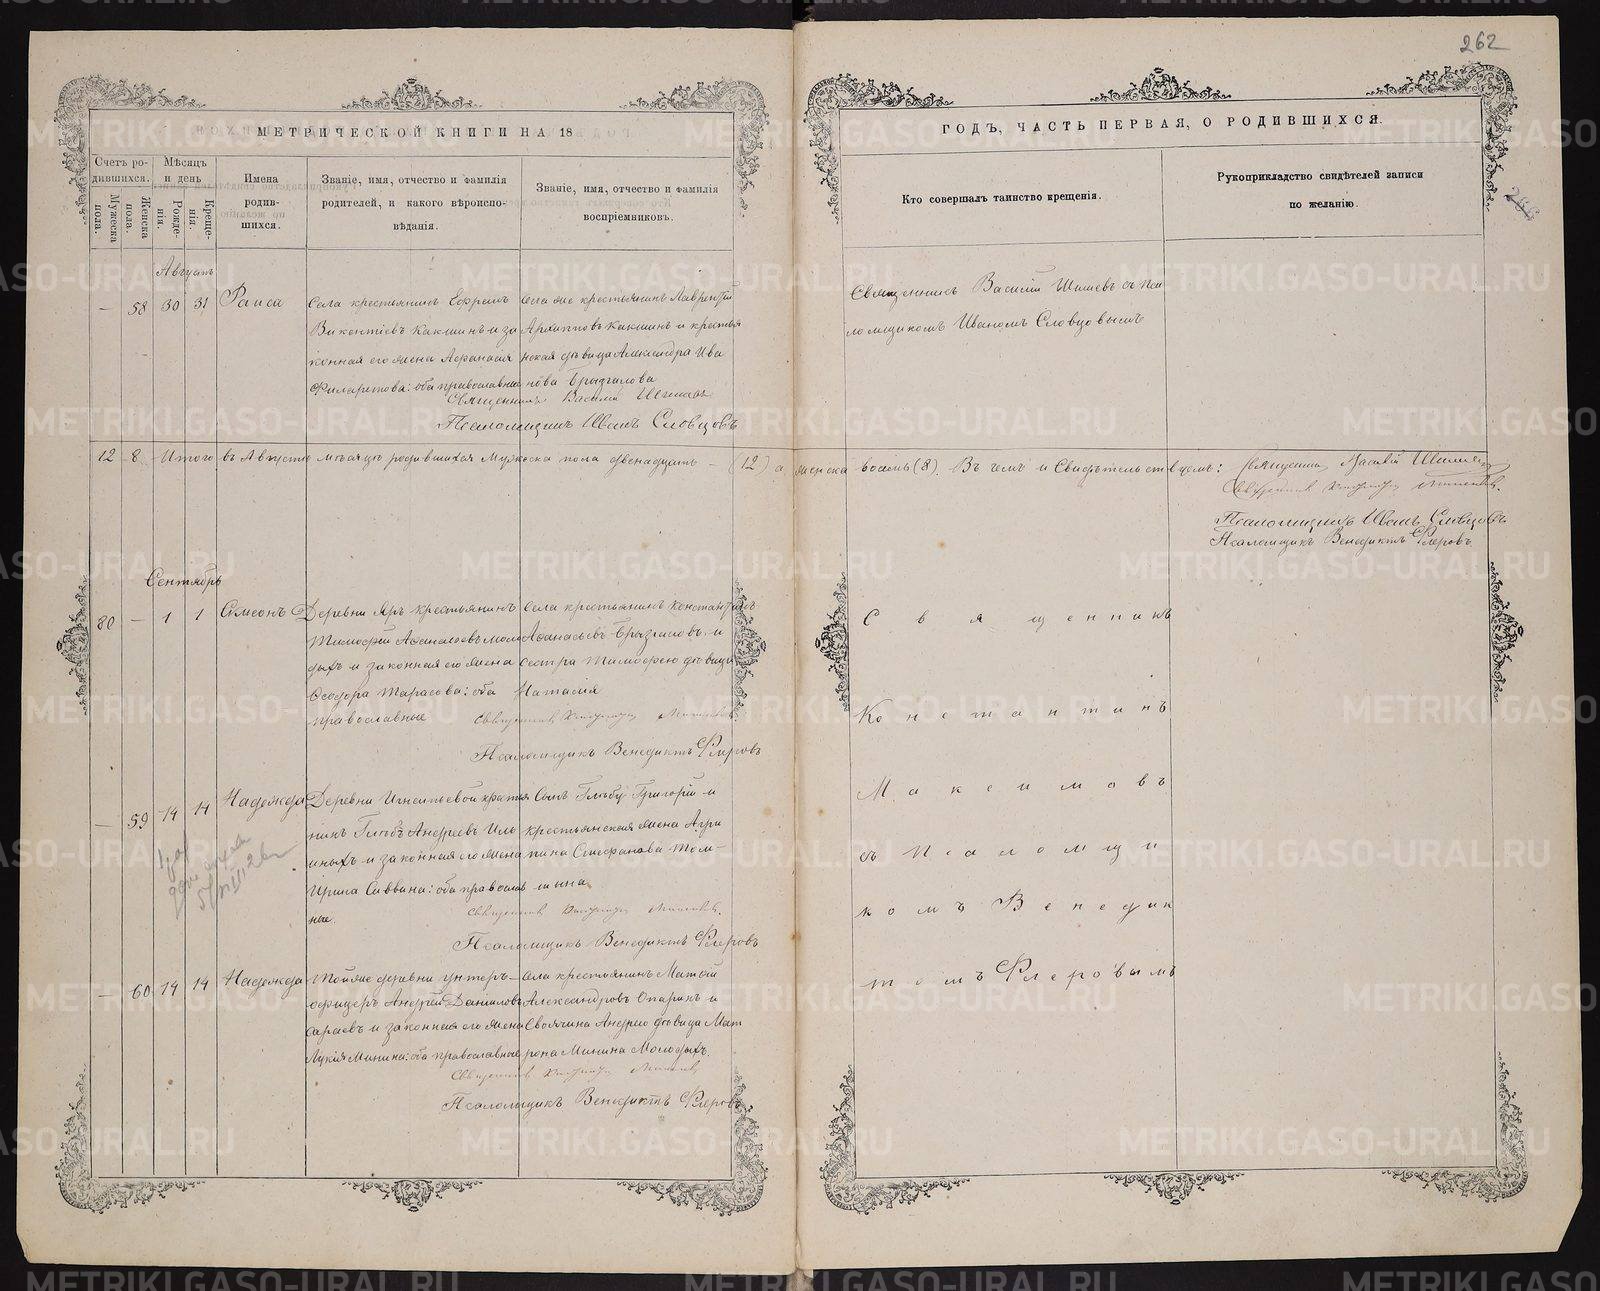 262
МЕТРИЧЕСКОЙ КНИГИ НА 18
ГОДЪ, ЧАСТЬ ПЕРВАЯ, О РОДИВШИХСЯ.
Счетъ ро-
дившихся.
Мужеска
пола.
Женска
пола.
Мѣсяцъ
и день
Рожде-
нія.
Креще-
нія.
Имена
родив-
шихся.
Званіе, имя, отчество и фамилія
родителей, и какого вѣроиспо-
вѣданія.
Званіе, имя, отчество и фамилія
воспріемниковъ.
Кто совершалъ таинство крещенія.
Рукоприкладство свидѣтелей записи
по желанію.
266
Августъ
— 58 30 31 Раиса
Села крестьянинъ Ефремъ
Викентіевъ Какшинъ и за
конная его жена Афанасія
Филаретова: оба православные
села же крестьянинъ Лаврентій
Архипповъ Какшинъ и крестья
нская дѣвица Александра Ива
нова Брызгалова
Священникъ Василій Шишевъ
Псаломщикъ Иванъ Словцовъ
Священникъ Василій Шишевъ съ Пса
ломщикомъ Иваномъ Словцовымъ
12 8 Итого въ Августѣ мѣсяцѣ родившихся Мужеска пола двенадцать — (12) а женска восемь (8). Въ чемъ и Свидѣтельствуемъ:
Священникъ Василій Шишевъ
Священникъ Константинъ Максимовъ.
Псаломщикъ Иванъ Словцовъ
Псаломщикъ Венедиктъ Флеровъ
Сентябрь
80 — 1 1 Симеонъ
Деревни Яръ крестьянинъ
Тимофей Афанасьевъ Моло
дыхъ и законная его жена
Феодора Тарасова: оба
православные
села крестьянинъ Константинъ
Афанасьевъ Брызгаловъ и
сестра Тимофею дѣвица
Наталія
Священникъ Константинъ Максимовъ.
Псаломщикъ Венедиктъ Флеровъ
— 59 14 14 Надежда
Деревни Игнатьевой крестья
нинъ Глѣбъ Андреевъ Иль
иныхъ и законная его жена
Ирина Саввина: оба православ
ные.
Сынъ Глѣбу Григорій и
крестьянская жена Агри
пина Стефанова Том-
ина
Священникъ Константинъ Максимовъ.
Псаломщикъ Венедиктъ Флеровъ
— 60 14 14 Надежда
Той же деревни унтеръ-
офицеръ Андрей Даниловъ
Сараевъ и законная его жена
Лукія Минина: оба православные
села крестьянинъ Матвѣй
Александровъ Опаринъ и
Своячина Андрею дѣвица Мат
рона Минина Молодыхъ.
Священникъ Константинъ Максимовъ
Псаломщикъ Венедиктъ Флеровъ
Священникъ
Константинъ
Максимовъ
съ Псаломщи
комъ Венедик
томъ Флеровымъ
METRIKI.GASO-URAL.RU